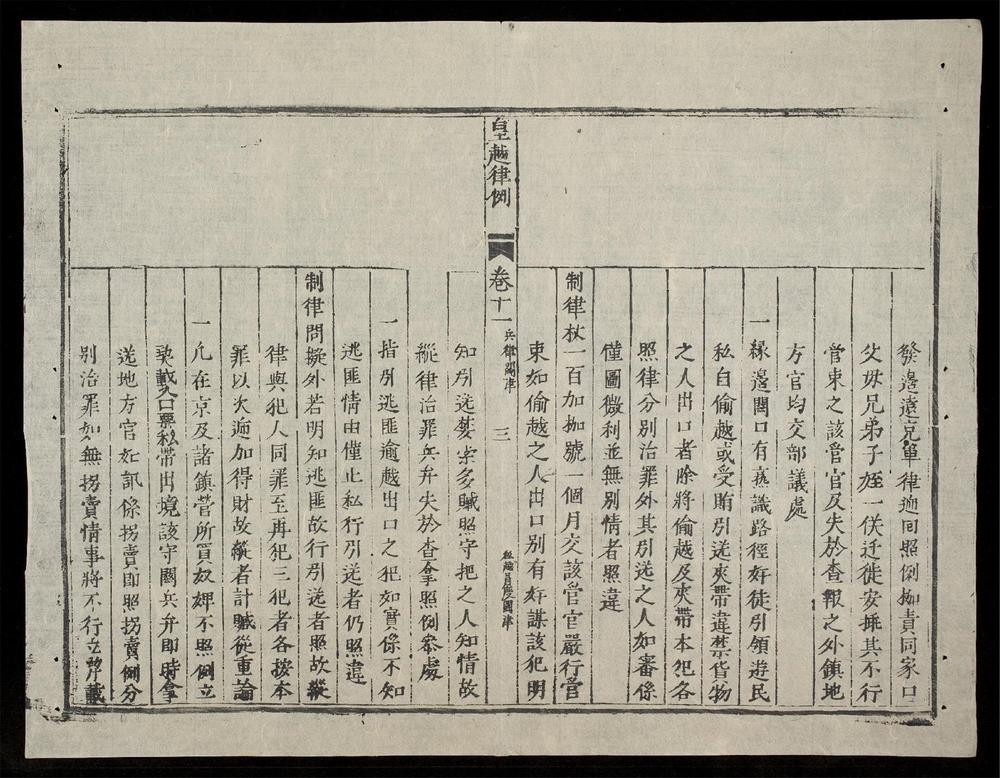 發邊遠充軍律遞回照例枷責同家口
父母兄弟子姪一倂迁徙安揷其不行
管束之該管官及失於查報之外鎮地
方官均交部議處
一緣邊関口有熟識路徑奸徒引領逰民
私自偷越或受賄引送夾帶違禁貨物
之人出口者除將偷越及夾帶本犯各
照律分别治罪外其引送之人如審係
僅圖微利並無别情者照違
制律杖一百加枷號一個月交該管官嚴行管
束如偷越之人出口别有奸謀該犯明
皇越律例 卷十一 兵律関津 三
知引送蒌索多贓照守把之人知情故
縱律治罪兵弁失於查拿照例叅處
一指引逃匪逾越出口之犯如實係不知
逃匪情由僅止私行引送者仍照違
制律問擬外若明知逃匪故行引送者照故縱
律與犯人同罪至再犯三犯者各按本
罪以次逓加得財故縱者計贓從重論
一凡在京及諸鎮營所買奴婢不照例立
契載入口票私帶出境該守関兵弁即時拿
送地方官究訊係拐賣即照拐賣例分
别治罪如無拐賣情事將不行立契載